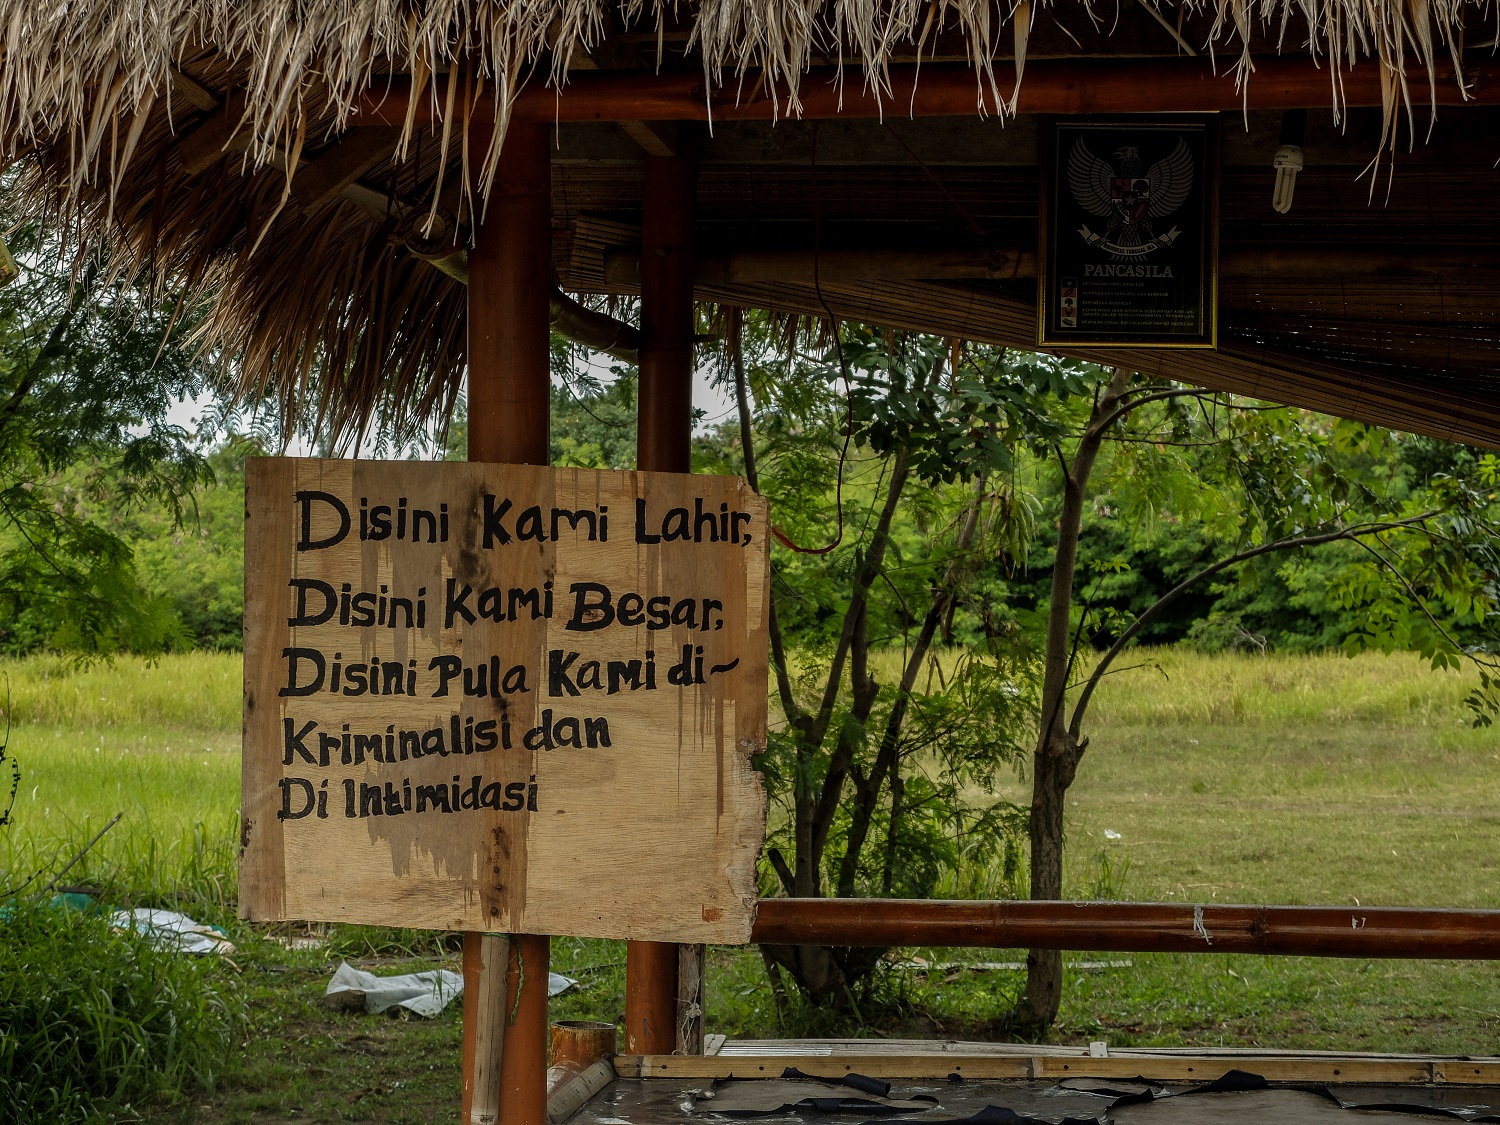 Disini Kami Lahir,
Disini Kami Besar,
Disini Pula Kami di~
Kriminalisi dan
Di Intimidasi
PANCASILA